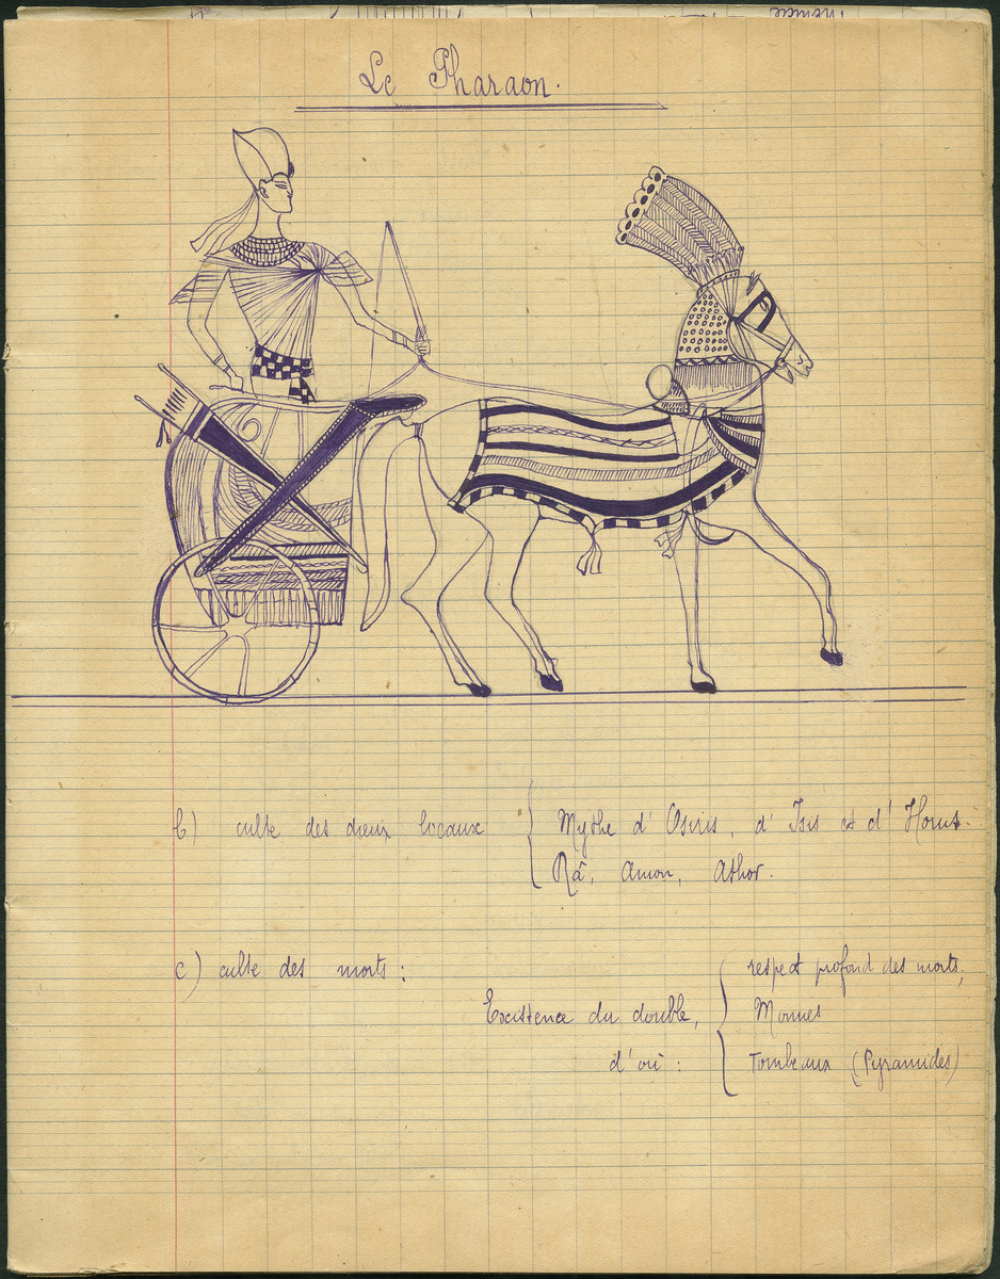 Le Pharaon.
b) culte des dieux locaux { Mythe d'Osiris, d'Isis et d'Horus.
Râ, Amon, Athor.
c) culte des morts :
respect profond des morts,
Existence du double, { Momies
d'où : Tombeaux (Pyramides)